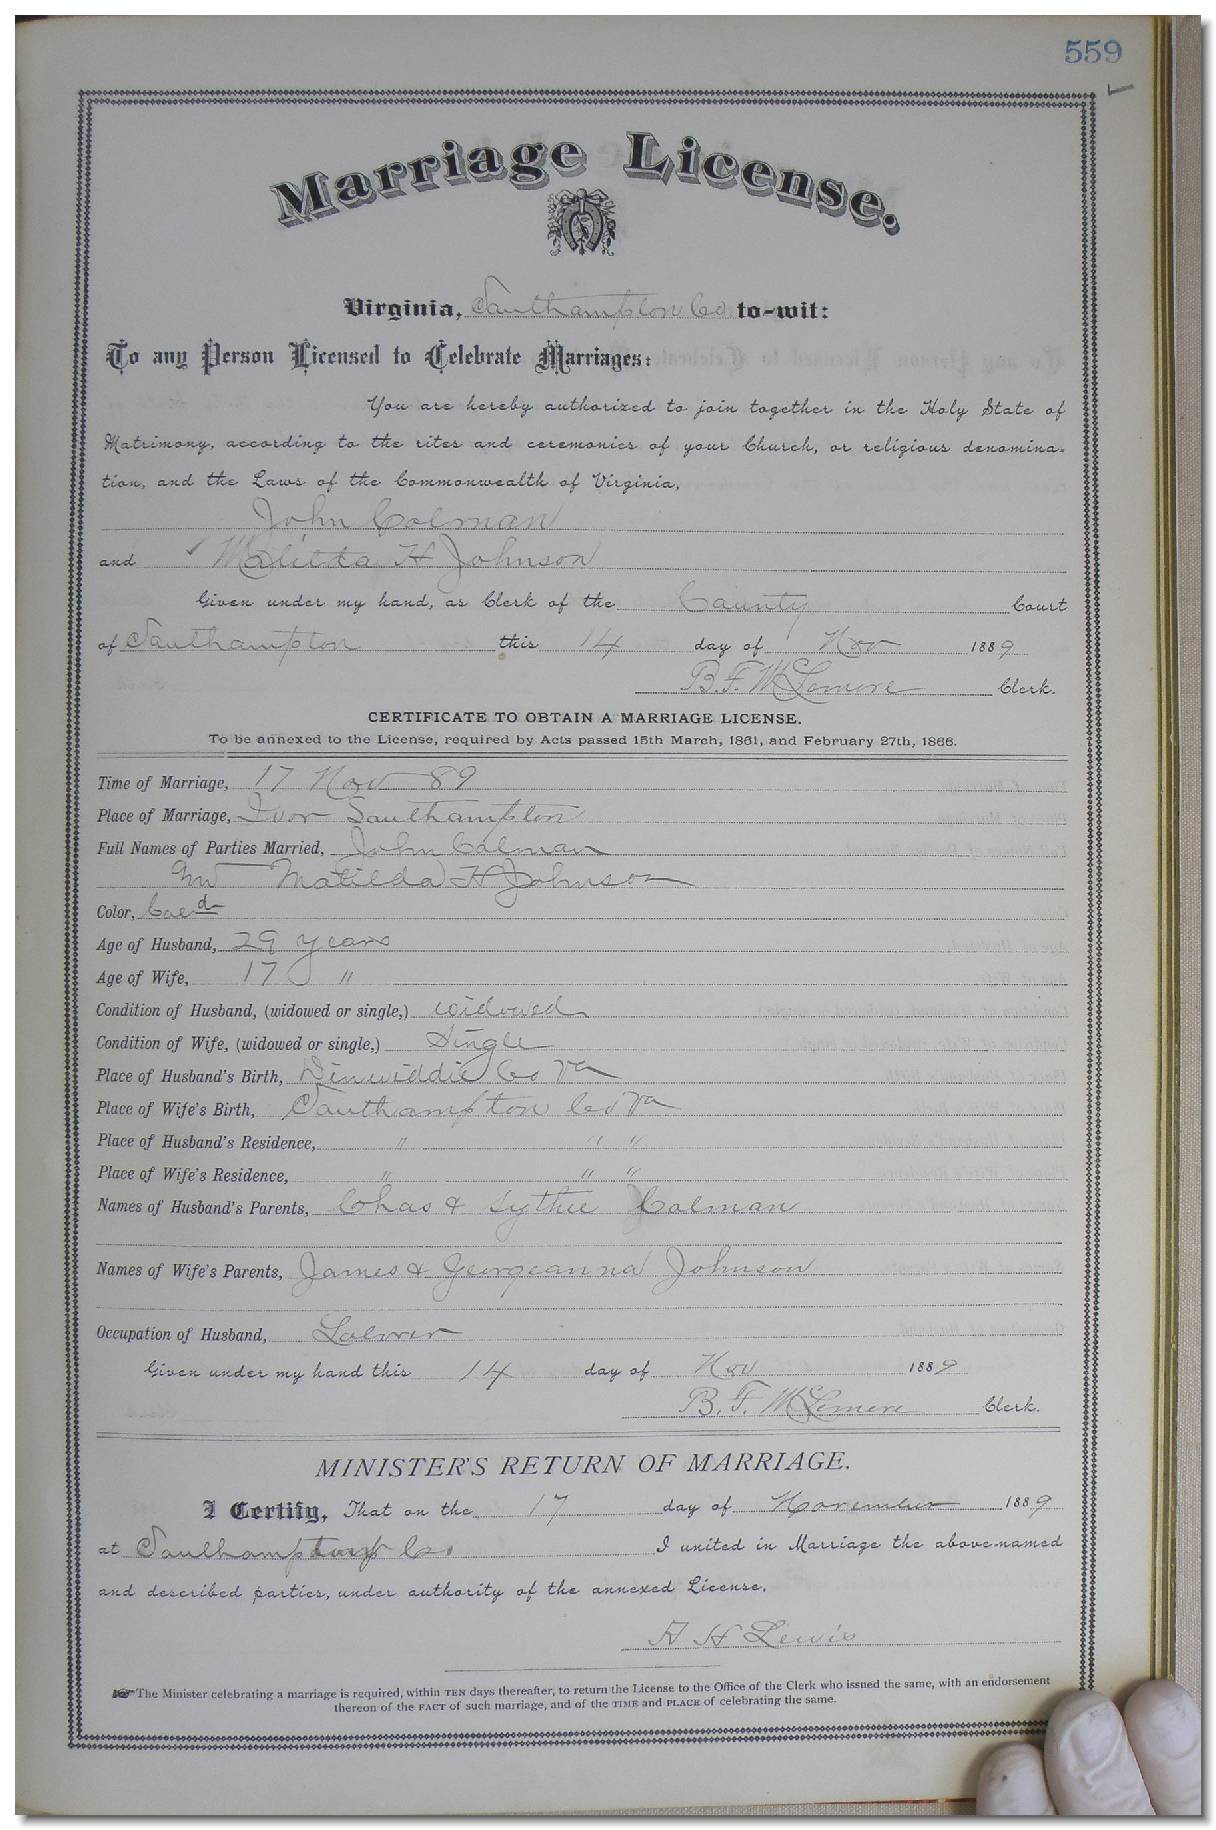 559
Marriage License.
Virginia, Southampton Co to-wit:
To any Person Licensed to Celebrate Marriages:
You are hereby authorized to join together in the Holy State of
Matrimony, according to the rites and ceremonies of your Church, or religious denomina-
tion, and the Laws of the Commonwealth of Virginia,
John Colman
and Matilda H Johnson
Given under my hand, as Clerk of the County Court
of Southampton this 14 day of Nov 1889
B. F. McLemore Clerk.
CERTIFICATE TO OBTAIN A MARRIAGE LICENSE.
To be annexed to the License, required by Acts passed 15th March, 1861, and February 27th, 1866.
Time of Marriage, 17 Nov 89
Place of Marriage, Ivor Southampton
Full Names of Parties Married, John Colman
Matilda H Johnson
Color, Cold
Age of Husband, 29 years
Age of Wife, 17 "
Condition of Husband, (widowed or single,) widowed
Condition of Wife, (widowed or single,) Single
Place of Husband's Birth, Dinwiddie Co Va
Place of Wife's Birth, Southampton Co Va
Place of Husband's Residence, " " "
Place of Wife's Residence, " " "
Names of Husband's Parents, Chas & Sythie Colman
Names of Wife's Parents, James & Georgeanna Johnson
Occupation of Husband, Laborer
Given under my hand this 14 day of Nov 1889
B. F. McLemore Clerk.
MINISTER'S RETURN OF MARRIAGE.
I Certify, That on the 17 day of November 1889
at Southampton Co. I united in Marriage the above-named
and described parties, under authority of the annexed License.
H Lewis
The Minister celebrating a marriage is required, within TEN days thereafter, to return the License to the Office of the Clerk who issued the same, with an endorsement
thereon of the FACT of such marriage, and of the TIME and PLACE of celebrating the same.